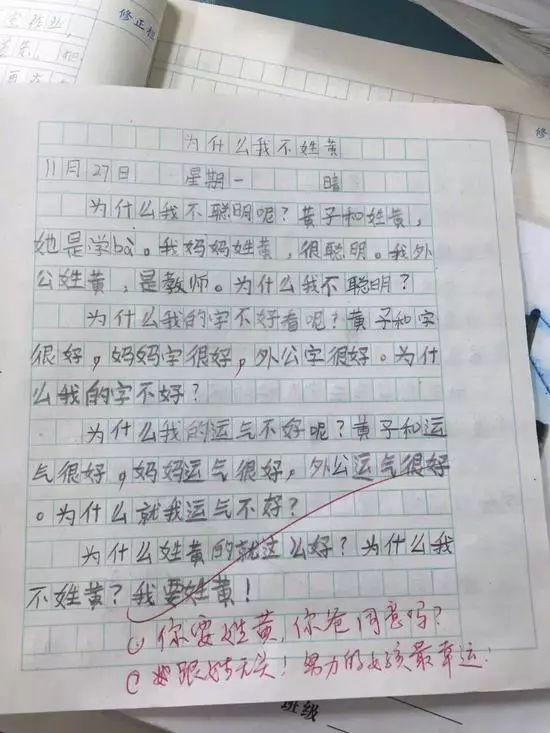 修正栏
为什么我不姓黄
11月27日 星期一 晴
为什么我不聪明呢?黄子和姓黄,
她是学bà。我妈妈姓黄,很聪明。我外
公姓黄,是教师。为什么我不聪明?
为什么我的字不好看呢?黄子和字
很好,妈妈字很好,外公字很好。为什
么我的字不好?
为什么我的运气不好呢?黄子和运
气很好,妈妈运气很好,外公运气很好
。为什么就我运气不好?
为什么姓黄的就这么好?为什么我
不姓黄?我要姓黄!
你要姓黄,你爸同意吗?
跟姓无关!努力的女孩最幸运!
班级